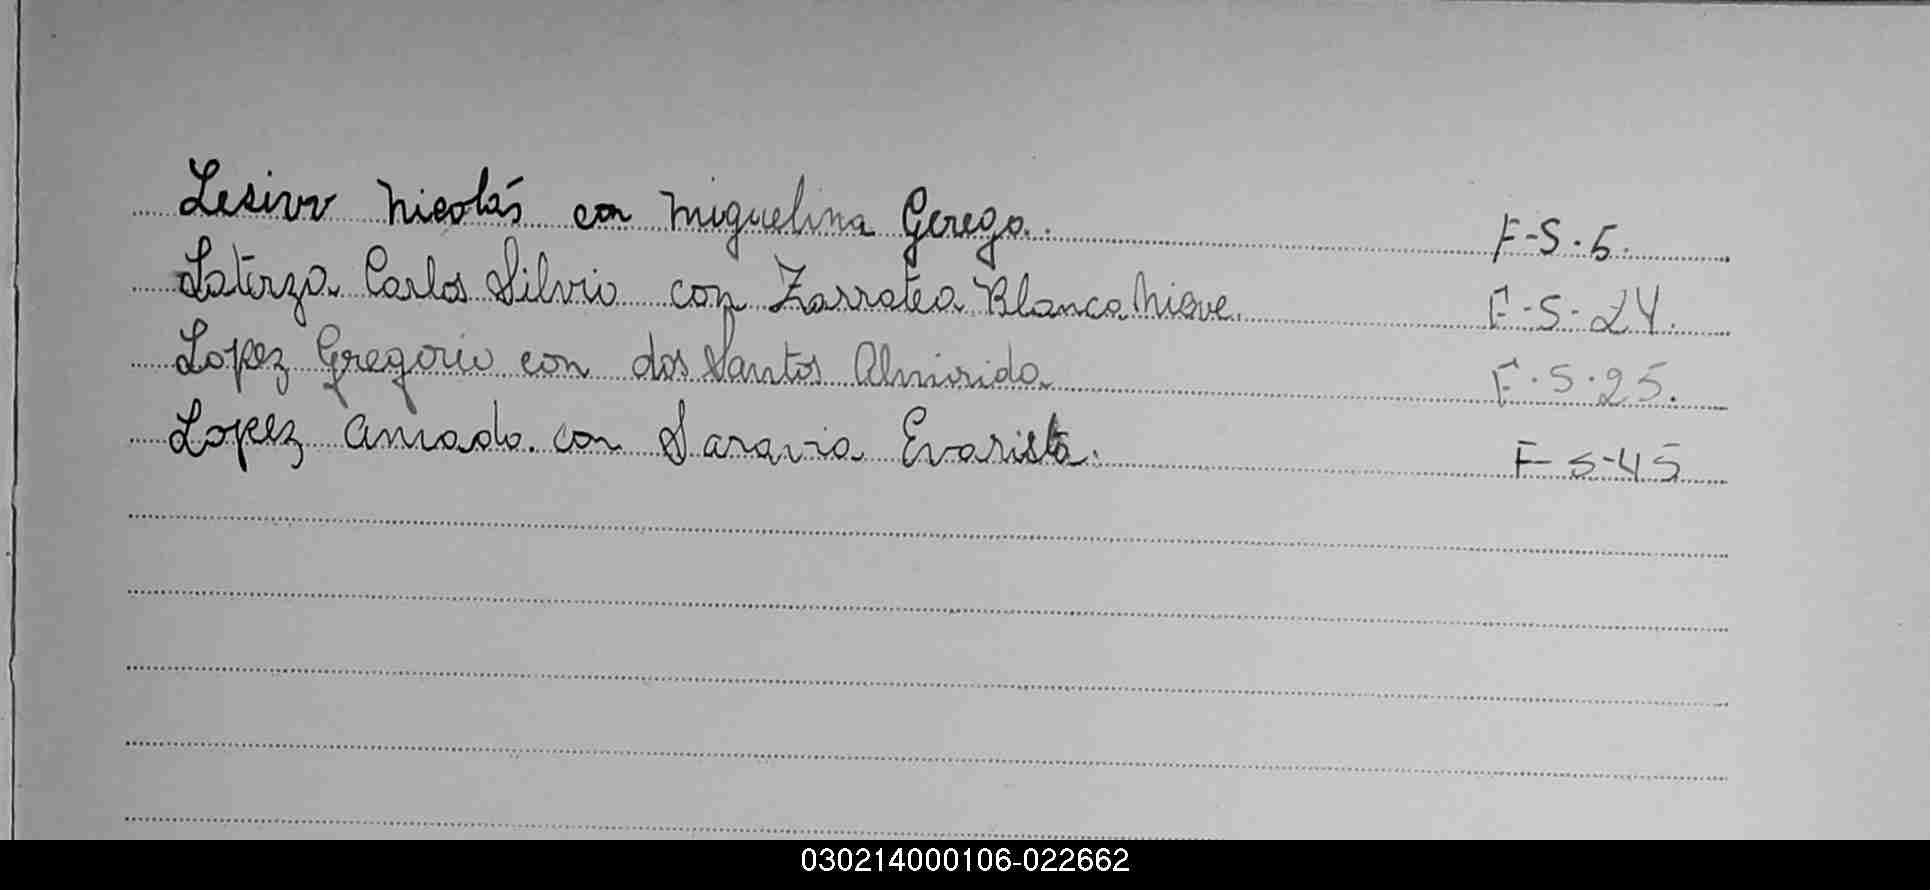 Lesivv Nicolás con Miguelina Gerego. F-S.5.
Laterza Carlos Silvio con Zarratea Blanca Nieve. F-S-24.
Lopez Gregorio con dos Santos Almirida F.S.25.
Lopez Amado. con Saravia Evarista. F S-45
030214000106-022662